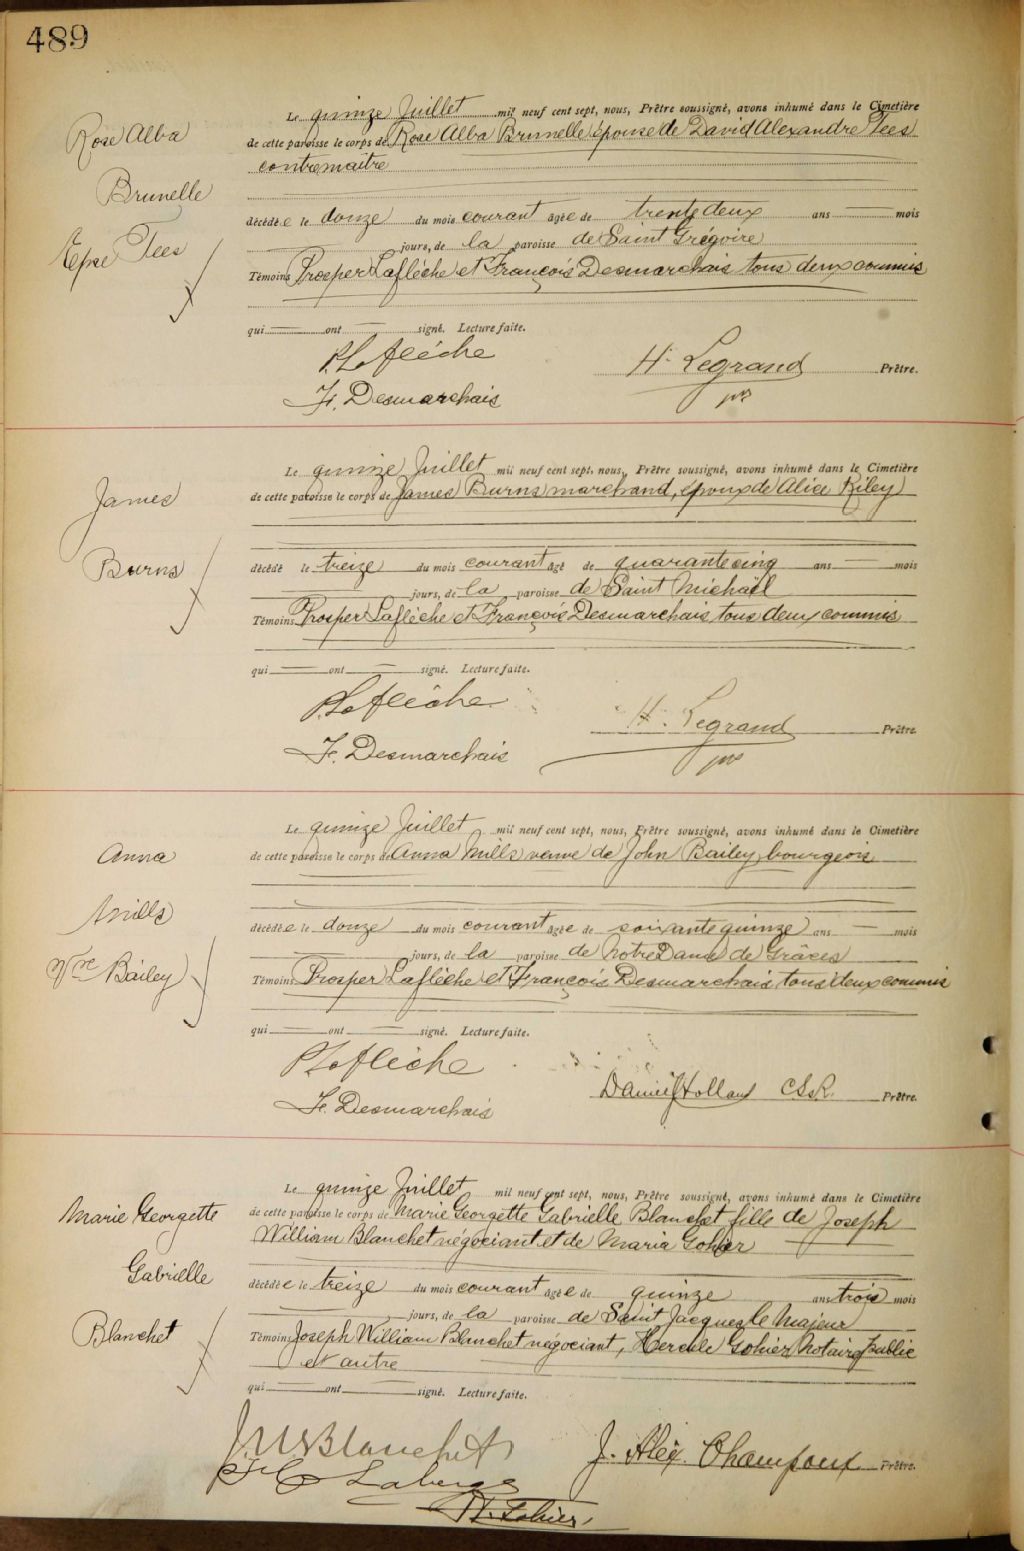 489
Rose Alba
Brunelle
Epse Tees
Le quinze Juillet mil neuf cent sept, nous, Prêtre soussigné, avons inhumé dans le Cimetière
de cette paroisse le corps de Rose Alba Brunelle épouse de David Alexandre Tees
contremaître
décédée le douze du mois courant âgée de trente deux ans — mois
jours, de la paroisse de Saint Grégoire
Témoins Prosper Laflèche et François Desmarchais tous deux commis
qui — ont — signé. Lecture faite.
P. Laflèche
H. Legrand Prêtre.
F. Desmarchais
James
Burns
Le quinze Juillet mil neuf cent sept, nous, Prêtre soussigné, avons inhumé dans le Cimetière
de cette paroisse le corps de James Burns marchand, époux de Alice Riley
décédé le treize du mois courant âgé de quarante cinq ans — mois
jours, de la paroisse de Saint Michaël
Témoins Prosper Laflèche et François Desmarchais, tous deux commis
qui — ont — signé. Lecture faite.
P. Laflèche
H. Legrand Prêtre.
F. Desmarchais
Anna
Mills
Vve Bailey
Le quinze Juillet mil neuf cent sept, nous, Prêtre soussigné, avons inhumé dans le Cimetière
de cette paroisse le corps de Anna Mills veuve de John Bailey, bourgeois
décédée le douze du mois courant âgée de soixante quinze ans — mois
jours, de la paroisse de Notre Dame de Grâces
Témoins Prosper Laflèche et François Desmarchais, tous deux commis
qui — ont — signé. Lecture faite.
P. Laflèche
Daniel Holland C.Ss.R. Prêtre.
F. Desmarchais
Marie Georgette
Gabrielle
Blanchet
Le quinze Juillet mil neuf cent sept, nous, Prêtre soussigné, avons inhumé dans le Cimetière
de cette paroisse le corps de Marie Georgette Gabrielle Blanchet fille de Joseph
William Blanchet négociant et de Maria Gohier
décédée le treize du mois courant âgée de quinze ans trois mois
jours, de la paroisse de Saint Jacques le Majeur
Témoins Joseph William Blanchet négociant, Hercule Gohier Notaire Public
et autre
qui — ont — signé. Lecture faite.
J. W. Blanchet
J. Alex. Champoux Prêtre.
Laberge
H. Gohier